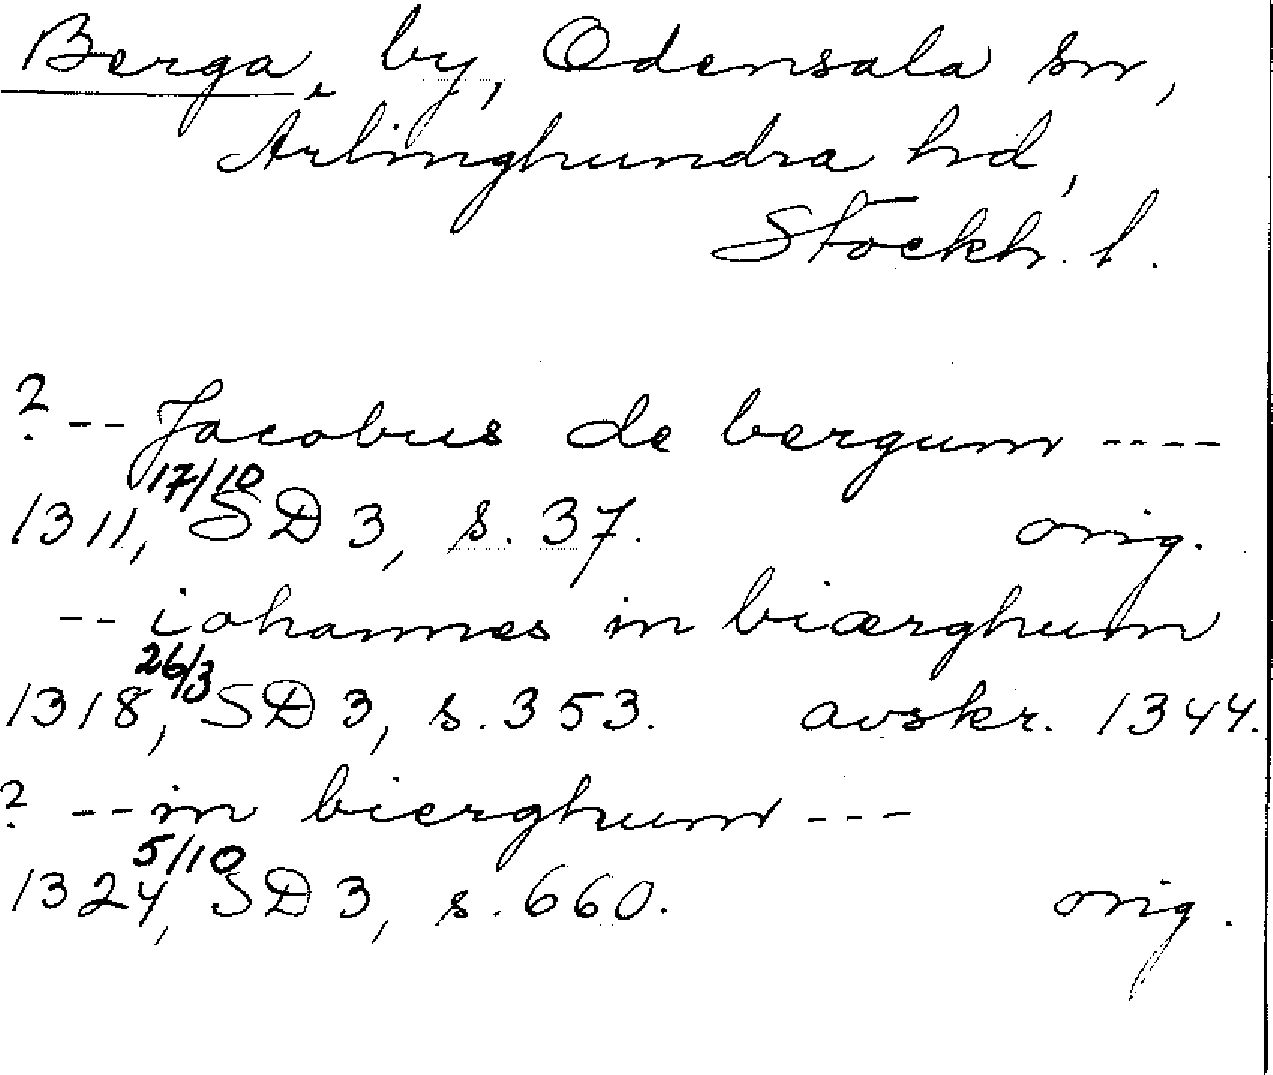 Berga, by, Odensala sn,
Ärlinghundra hd,
Stockh. l.
? -- Jacobus de bergum ----
17/10
1311, SD 3, s. 37. orig.
-- iohannes in biærghum
26/3
1318, SD 3, s. 353. avskr. 1344.
? -- in bierghum ---
5/10
1324, SD 3, s. 660. orig.